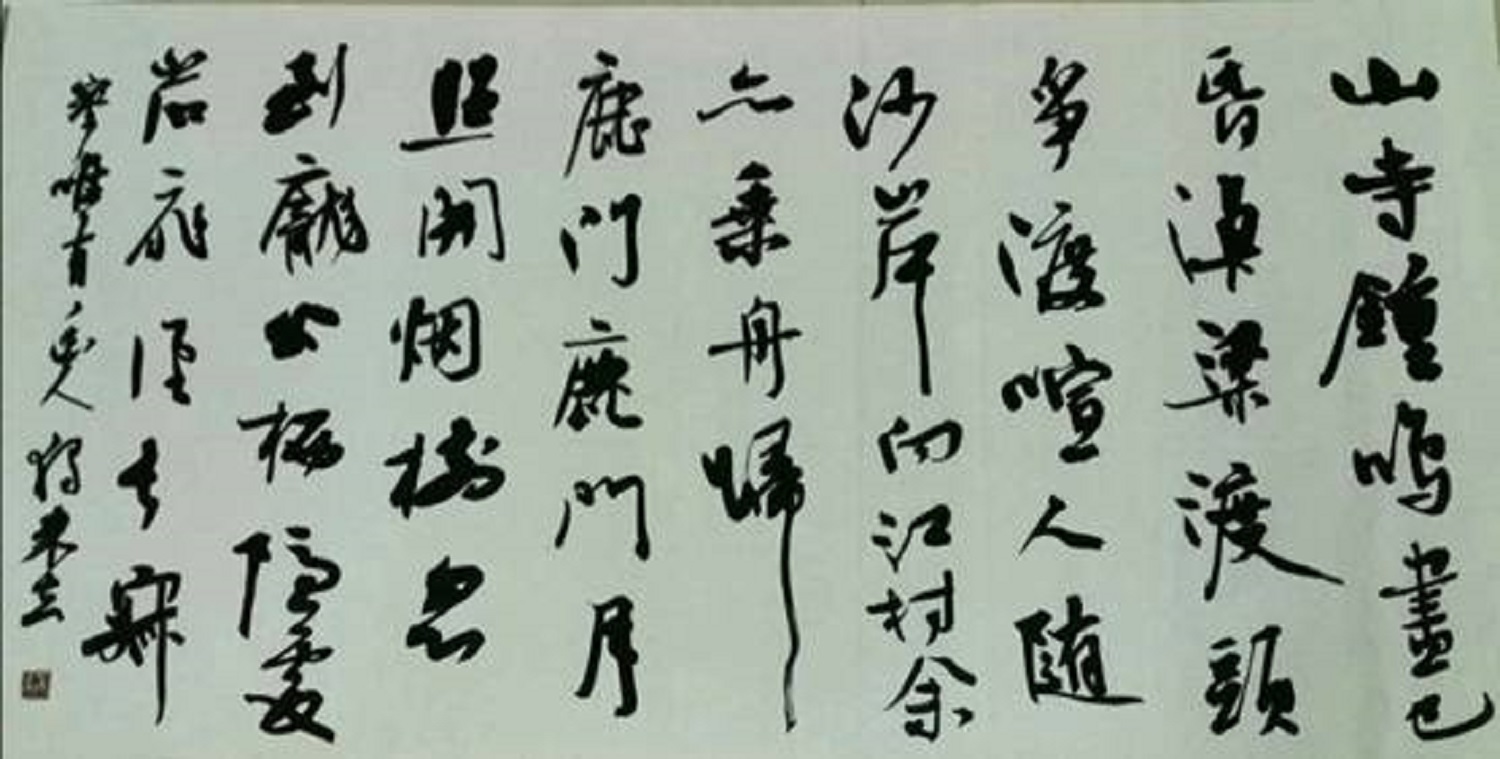 山寺鐘鳴晝已
昏漁梁渡頭
爭渡喧人随
沙岸向江村余
亦乘舟歸
鹿门鹿門月
照開烟樹忽
到龐公栖隱處
岩扉徑長寂
寥唯有幽人獨来去